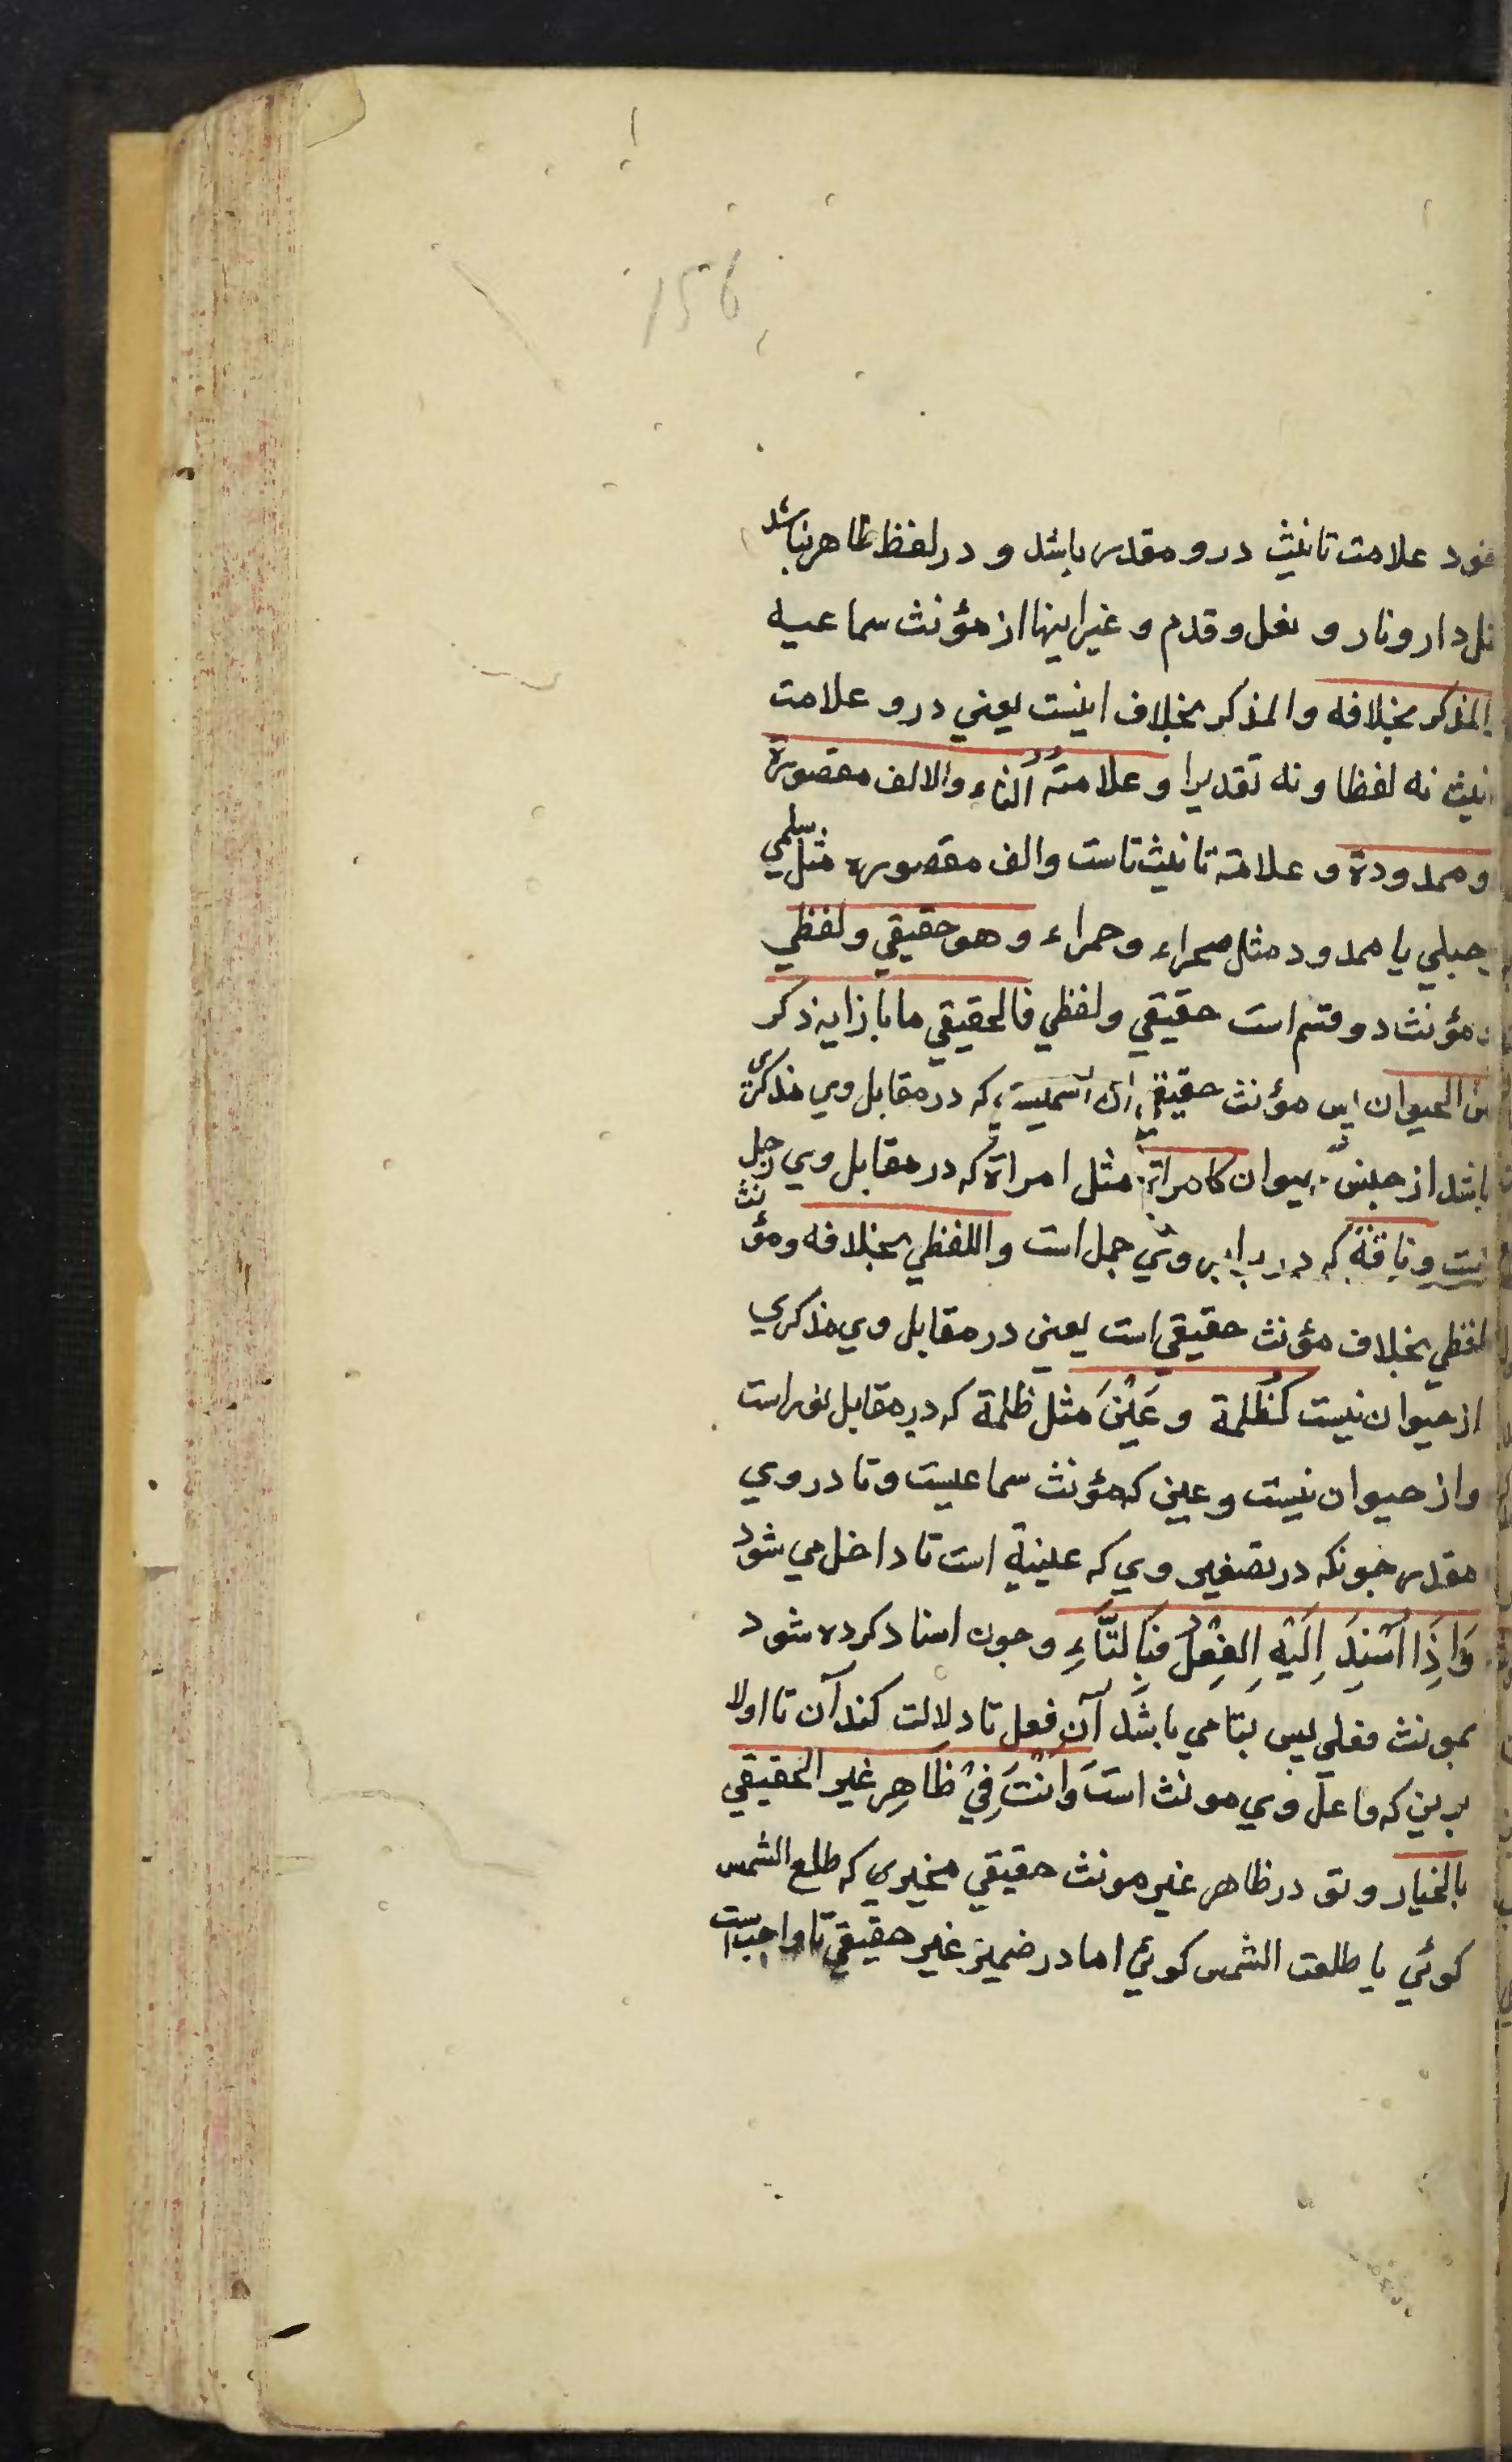 156
علامت تانیث درو مقدر باشد و در لفظ ظاهر نباشد
دار و نار و نعل و قدم و غیر اینها از مؤنث سماعیه
المذکر بخلافه والمذکر بخلاف اینست یعني درو علامت
نه لفظا و نه تقدیرا و علامتهُ التاء والالف مقصورة
و ممدودة و علامة تانیث تاست والف مقصوره مثل سلمي
حبلي یا ممدود مثل صحراء و حمراء و هو حقیقي و لفظي
مؤنث دو قسم است حقیقي و لفظي فالحقیقي ما بازایه ذکر
الحیوان پس مؤنث حقیقي آن اسمیست که در مقابل وي مذکری
باشد از جنس حیوان کامراة مثل امراة که در مقابل وي رجل
وناقة که در برابر وي جمل است واللفظي بخلافه ومؤنث
لفظي بخلاف مؤنث حقیقي است یعني در مقابل وي مذکري
از حیوان نیست کَظُلمة و عَیْنَ مثل ظلمة که در مقابل نور است
و از حیوان نیست و عین که مؤنث سماعیست و تا در وي
مقدر جونکه در تصغیر وي که عیینة است تا داخل مي شود
وَاِذَا اُسْنِدَ اِلَیْهِ الفِعْلُ فَبِالتَّاءِ و جون اسناد کرده شود
بمونث فعلي پس بتا مي باشد آن فعل تا دلالت کند آن تا اولا
برین که فاعل وي مونث است وَاَنْتَ فِيْ ظَاهِرِ غیر الحقیقي
بالخیار و تو در ظاهر غیر مونث حقیقي مخیري که طلع الشمس
کوئي یا طلعت الشمس کوئي اما در ضمیر غیر حقیقي تا واجب است